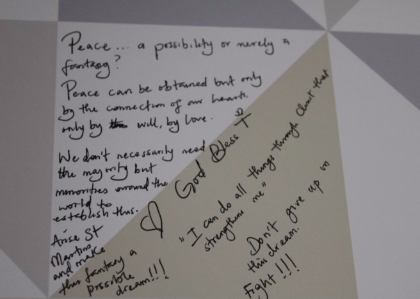 Peace... a possibility or merely a
fantasy?
Peace can be obtained but only
by the connection of our hearts.
only by will, by love.
We don't necessarily need
the majority but
minorities around the
world to
establish this.
Arise St
Martino
and make
this fantasy a
possible
dream!!!
God Bless
"I can do all things through Christ that
strengthens me"
Don't give up on
this dream.
Fight!!!!